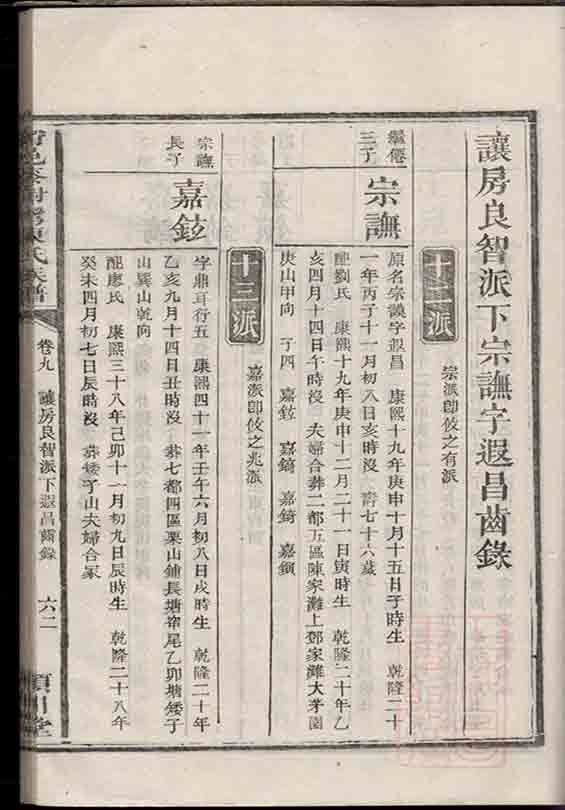 讓房良智派下宗譕字遐昌齒錄
十二派
宗派卽攸之有派
繼僊
三子
宗譕
原名宗謨字遐昌 康熙十九年庚申十月十五日子時生 乾隆二十
一年丙子十一月初八日亥時沒 壽七十六歲
配劉氏 康熙十九年庚申十二月二十一日寅時生 乾隆二十年乙
亥四月十四日午時沒 夫婦合葬二都五區陳家灘上鄧家灘大茅園
庚山甲向 子四 嘉鉉 嘉錡 嘉錡 嘉鎖
十三派
嘉派卽攸之兆派
宗譕
長子
嘉鉉
字鼎耳行五 康熙四十一年壬午六月初八日戌時生 乾隆二十年
乙亥九月十四日丑時沒 葬七都四區栗山鋪長塘𡨴尾乙卯塘矮子
山巽山乾向
配廖氏 康熙三十八年己卯十一月初九日辰時生 乾隆二十八年
癸未四月初七日辰時沒 葬矮子山夫婦合冢
陳氏族譜
卷九 讓房良智派下遐昌齒錄 六二
潁川堂